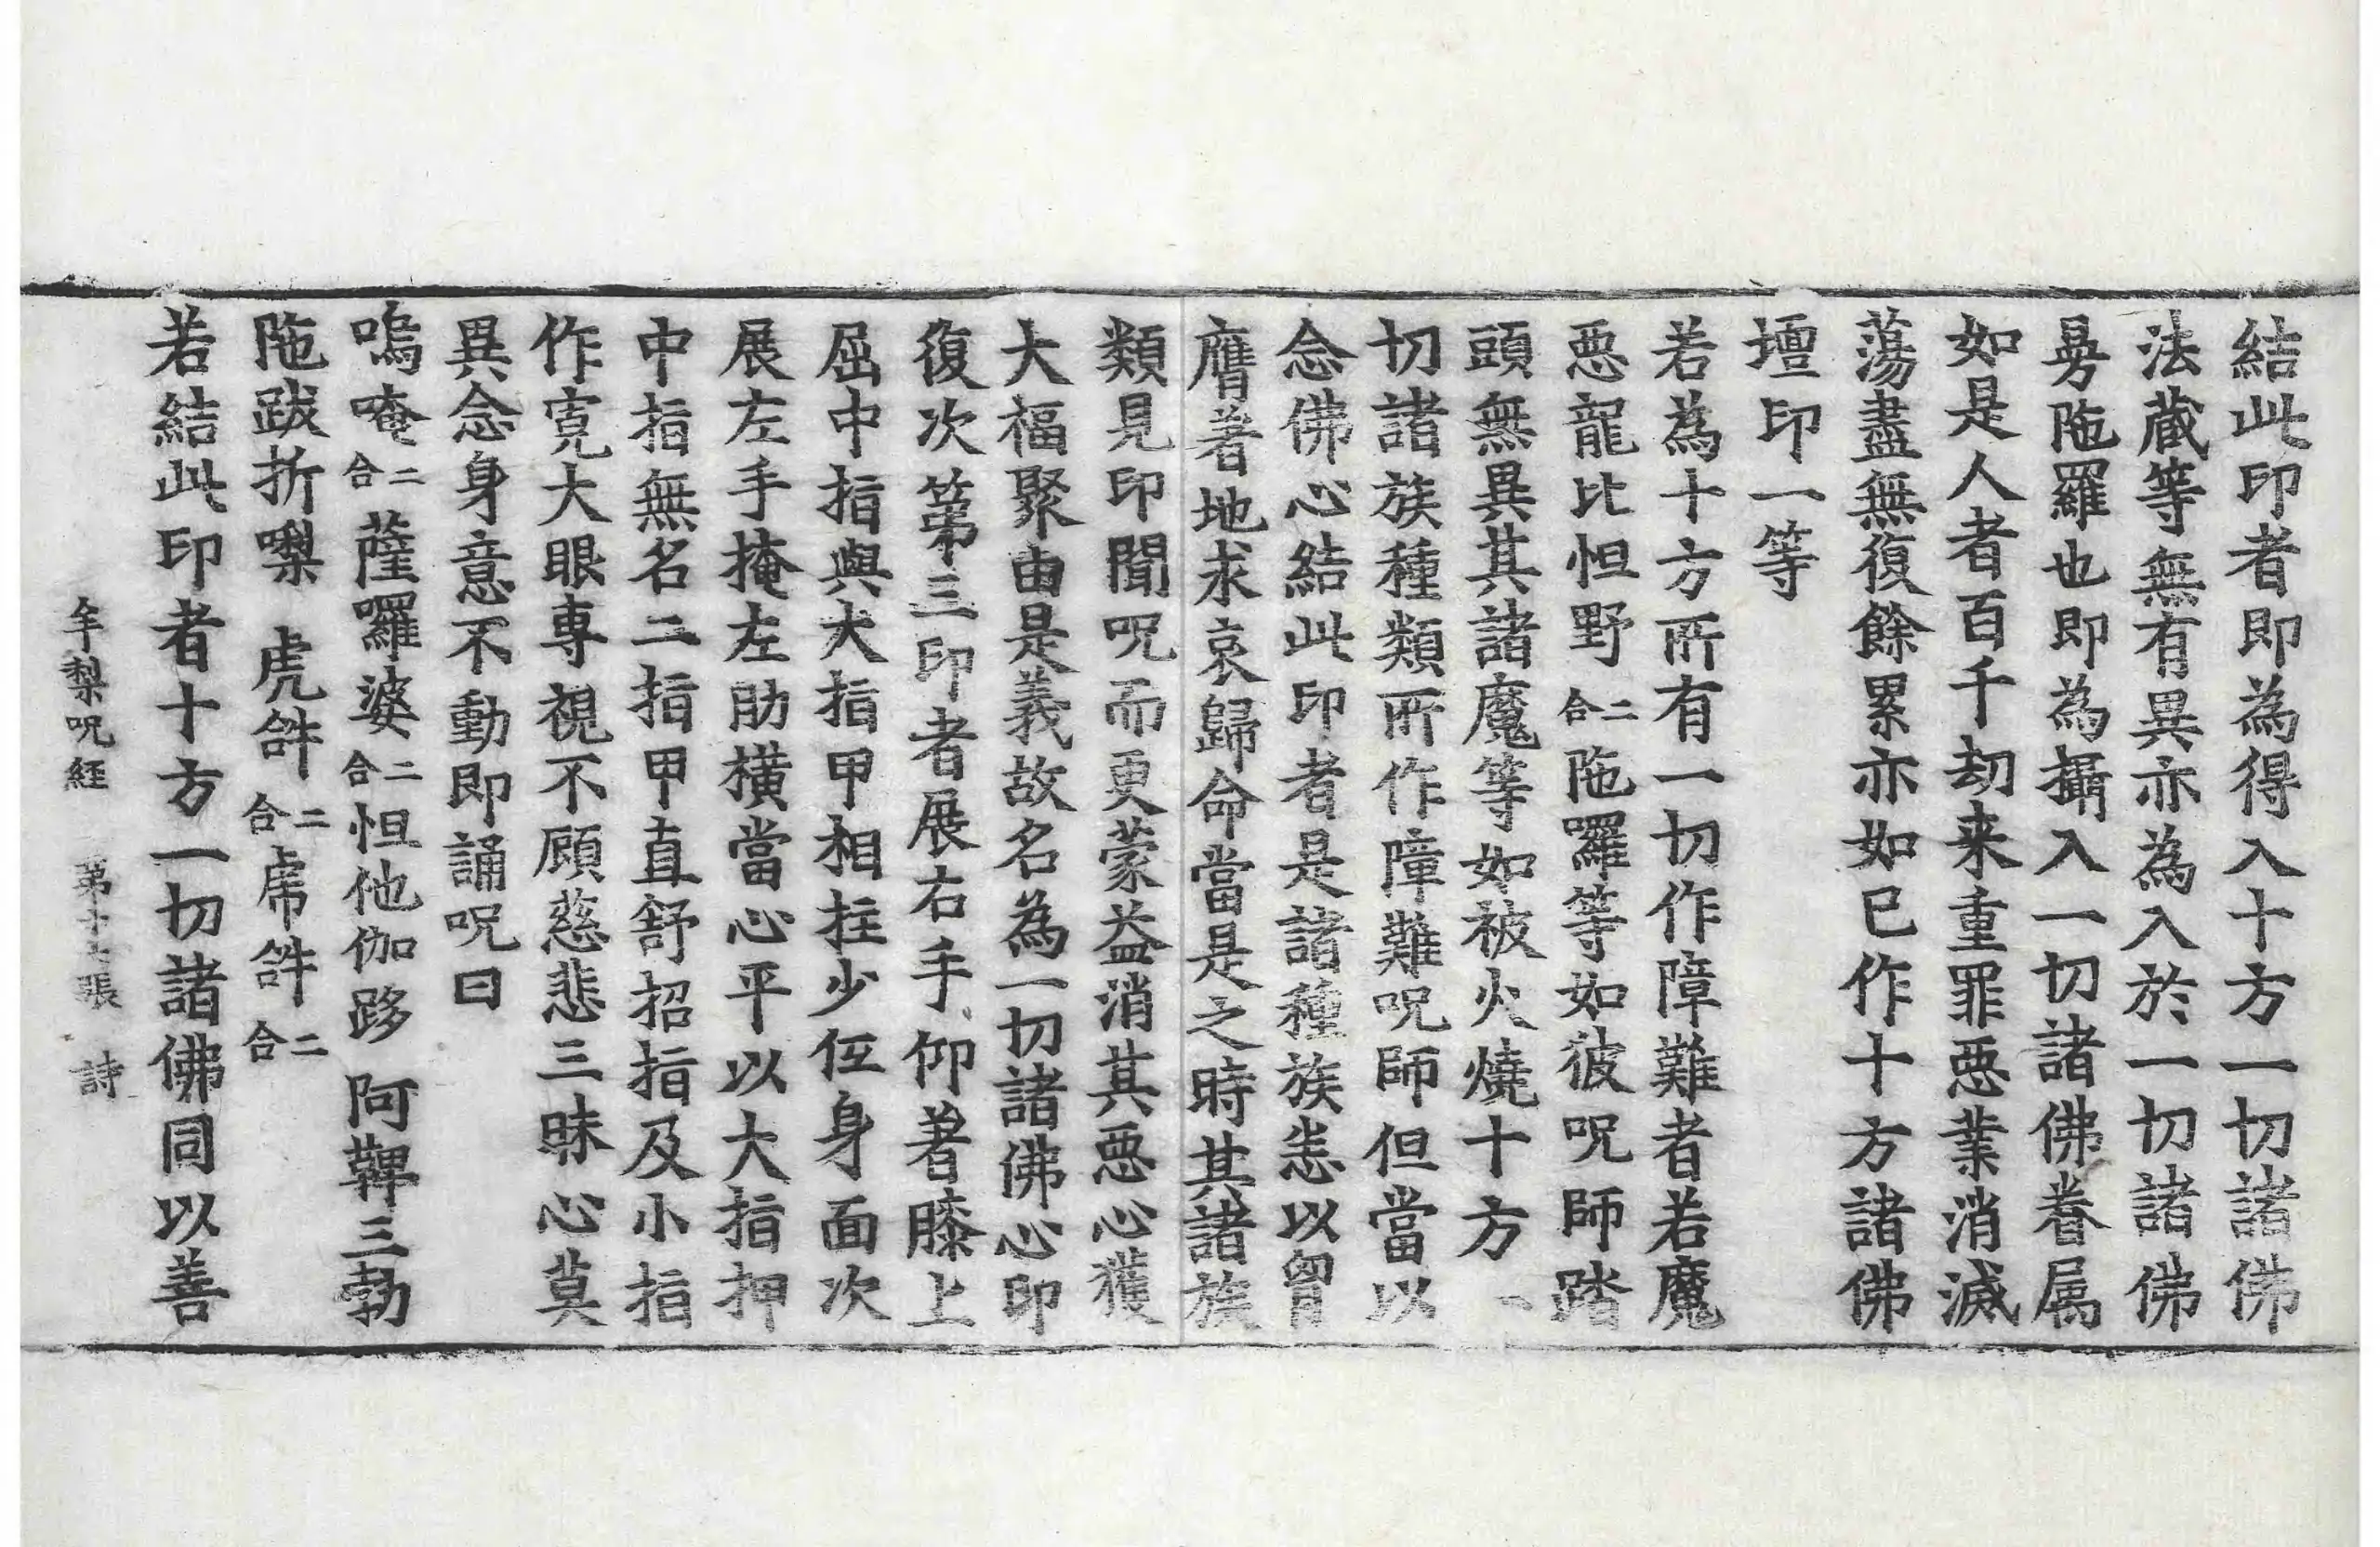 結此印者即為得入十方一切諸佛
法蔵等無有異亦為入於一切諸佛
㬅陁羅也即為攝入一切諸佛眷属
如是人者百千劫来重罪惡業消滅
蕩盡無復餘累亦如已作十方諸佛
壇印一等
若為十方所有一切作障難者若魔
惡龍比怛野二合陁囉等如彼咒師踏
頭無異其諸魔等如被火燒十方一
切諸族種類所作障難呪師但當以
念佛心結此印者是諸種族恙以胷
膺著地求哀歸命當是之時其諸族
類見印聞呪而更蒙益消其惡心獲
大福聚由是義故名為一切諸佛心印
復次第三印者展右手仰著膝上
屈中指與大指甲相拄少伍身面次
展左手掩左肋橫當心平以大指押
中指無名二指甲直舒招指及小指
作寬大眼專視不顧慈悲三昧心莫
異念身意不動即誦呪曰
嗚唵二合薩囉婆二合怛他伽跢 阿鞞三勃
陁跋折㘑 虎𤙖二合虎𤙖二合
若結此印者十方一切諸佛同以善
牟梨呪経 第十七張 詩